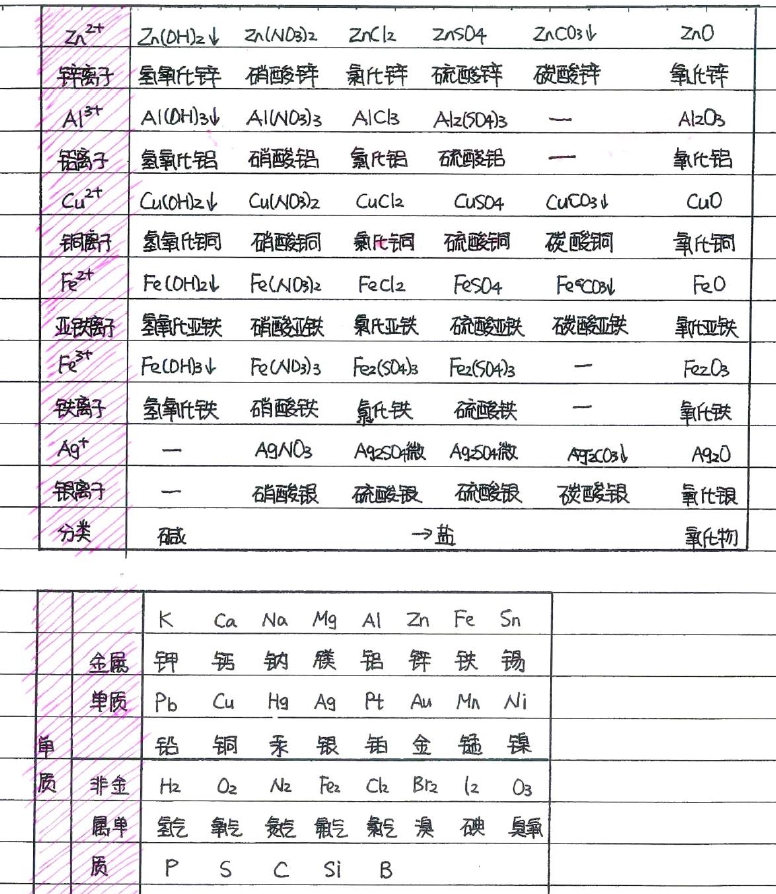 Zn²⁺ Zn(OH)₂↓ Zn(NO₃)₂ ZnCl₂ ZnSO₄ ZnCO₃↓ ZnO
锌离子 氢氧化锌 硝酸锌 氯化锌 硫酸锌 碳酸锌 氧化锌
Al³⁺ Al(OH)₃↓ Al(NO₃)₃ AlCl₃ Al₂(SO₄)₃ — Al₂O₃
铝离子 氢氧化铝 硝酸铝 氯化铝 硫酸铝 — 氧化铝
Cu²⁺ Cu(OH)₂↓ Cu(NO₃)₂ CuCl₂ CuSO₄ CuCO₃↓ CuO
铜离子 氢氧化铜 硝酸铜 氯化铜 硫酸铜 碳酸铜 氧化铜
Fe²⁺ Fe(OH)₂↓ Fe(NO₃)₂ FeCl₂ FeSO₄ FeCO₃↓ FeO
亚铁离子 氢氧化亚铁 硝酸亚铁 氯化亚铁 硫酸亚铁 碳酸亚铁 氧化亚铁
Fe³⁺ Fe(OH)₃↓ Fe(NO₃)₃ Fe₂(SO₄)₃ Fe₂(SO₄)₃ — Fe₂O₃
铁离子 氢氧化铁 硝酸铁 氯化铁 硫酸铁 — 氧化铁
Ag⁺ — AgNO₃ Ag₂SO₄微 Ag₂SO₄微 Ag₂CO₃↓ Ag₂O
银离子 — 硝酸银 硫酸银 硫酸银 碳酸银 氧化银
分类 碱 →盐 氧化物
K Ca Na Mg Al Zn Fe Sn
金属 钾 钙 钠 镁 铝 锌 铁 锡
单质 Pb Cu Hg Ag Pt Au Mn Ni
单 铅 铜 汞 银 铂 金 锰 镍
质 非金 H₂ O₂ N₂ Fe₂ Cl₂ Br₂ I₂ O₃
属单 氢气 氧气 氮气 氟气 氯气 溴 碘 臭氧
质 P S C Si B